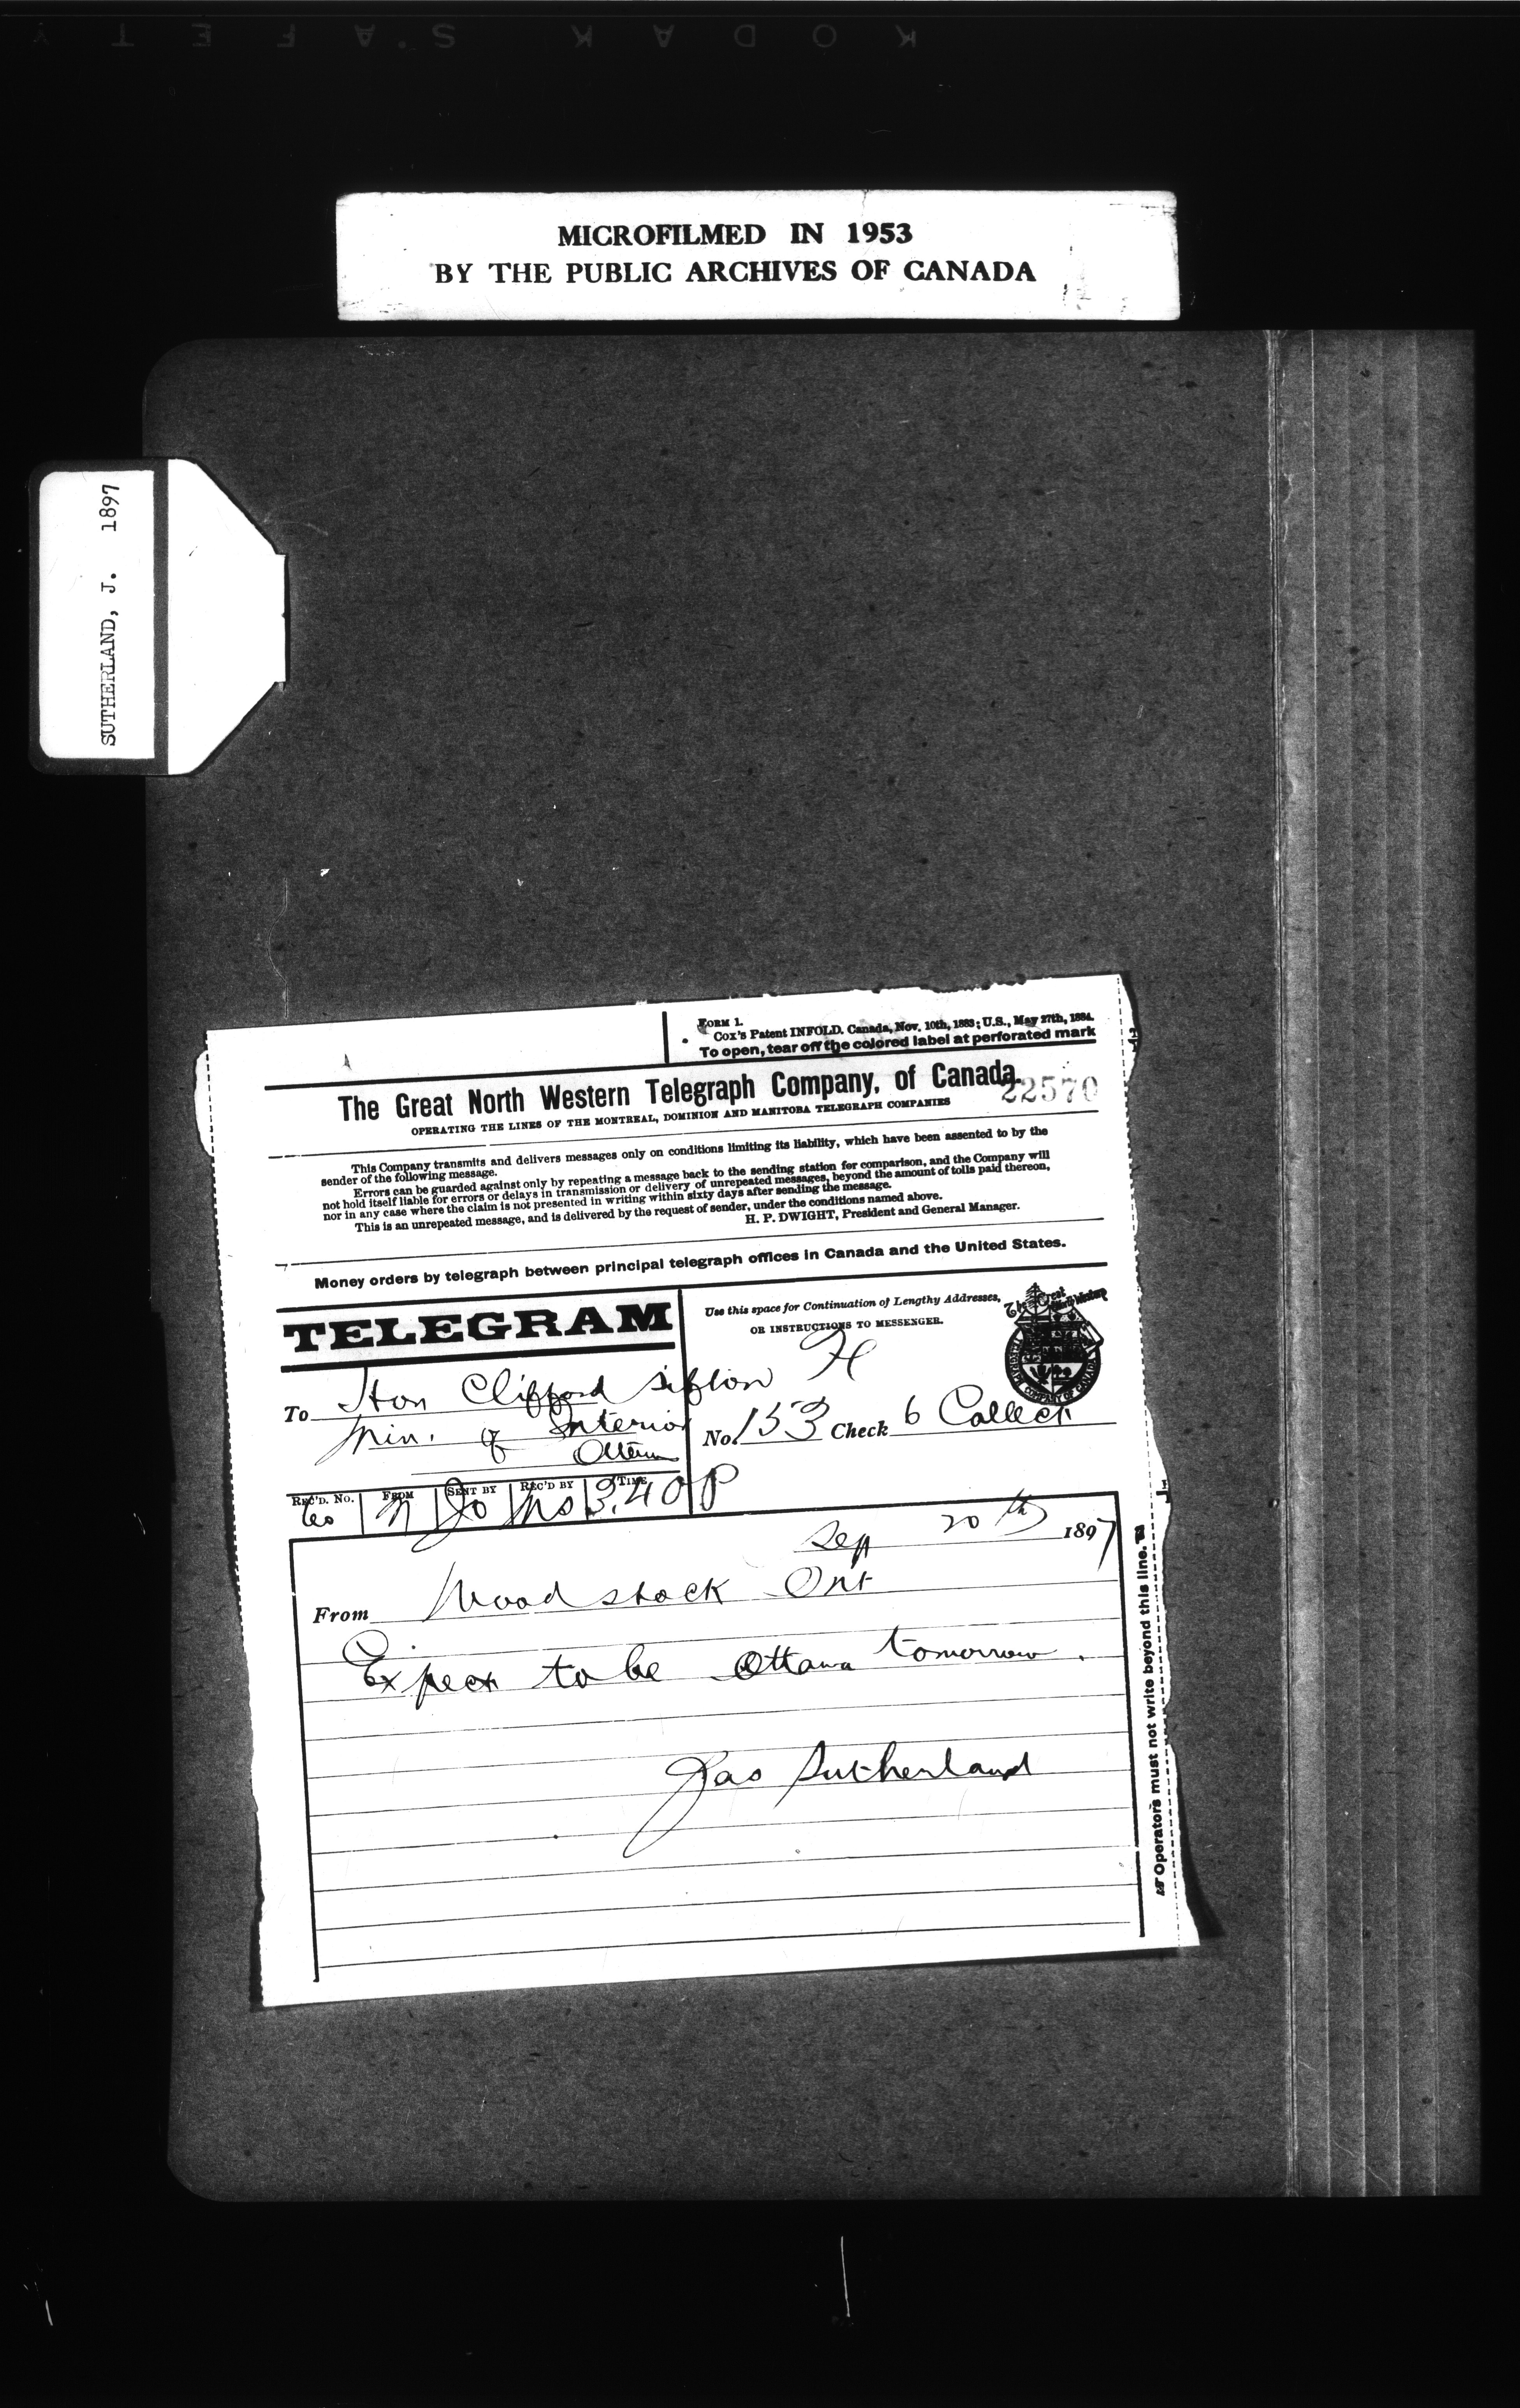 KODAK SAFETY
MICROFILMED IN 1953
BY THE PUBLIC ARCHIVES OF CANADA
SUTHERLAND, J. 1897
FORM 1.
Cox's Patent INFOLD. Canada, Nov. 10th, 1883; U.S., May 27th, 1884.
To open, tear off the colored label at perforated mark
The Great North Western Telegraph Company, of Canada.
22570
OPERATING THE LINES OF THE MONTREAL, DOMINION AND MANITOBA TELEGRAPH COMPANIES
This Company transmits and delivers messages only on conditions limiting its liability, which have been assented to by the
sender of the following message.
Errors can be guarded against only by repeating a message back to the sending station for comparison, and the Company will
not hold itself liable for errors or delays in transmission or delivery of unrepeated messages, beyond the amount of tolls paid thereon,
nor in any case where the claim is not presented in writing within sixty days after sending the message.
This is an unrepeated message, and is delivered by the request of sender, under the conditions named above.
H. P. DWIGHT, President and General Manager.
Money orders by telegraph between principal telegraph offices in Canada and the United States.
TELEGRAM
Use this space for Continuation of Lengthy Addresses,
OR INSTRUCTIONS TO MESSENGER.
The Great North Western
TELEGRAPH COMPANY OF CANADA
To Hon Clifford Sifton
Min. of Interior
Ottawa
H
No. 153 Check 6 Collect
REC'D. No. FROM SENT BY REC'D BY TIME
3.40 P
Sep 20th 1897
From Woodstock Ont
Expect to be Ottawa tomorrow.
Jas Sutherland
Operators must not write beyond this line.